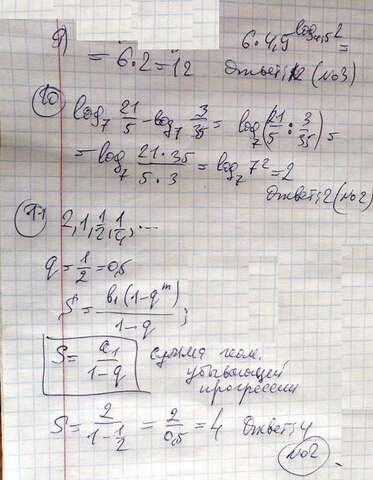 9) 6·4,9^log₄,₉2 =
= 6·2=12 Ответ: 12 (№3)
10 log₇ 21/5 - log₇ 3/35 = log₇(21/5 : 3/35) =
= log₇ 21·35/5·3 = log₇ 7² = 2
Ответ: 2 (№2)
11 2, 1, 1/2, 1/4, ...
q = 1/2 = 0,5
S = b₁(1-qⁿ)/1-q ;
S = a₁/1-q сумма геом.
убывающей
прогрессии
S = 2/1-1/2 = 2/0,5 = 4 Ответ: 4
№2